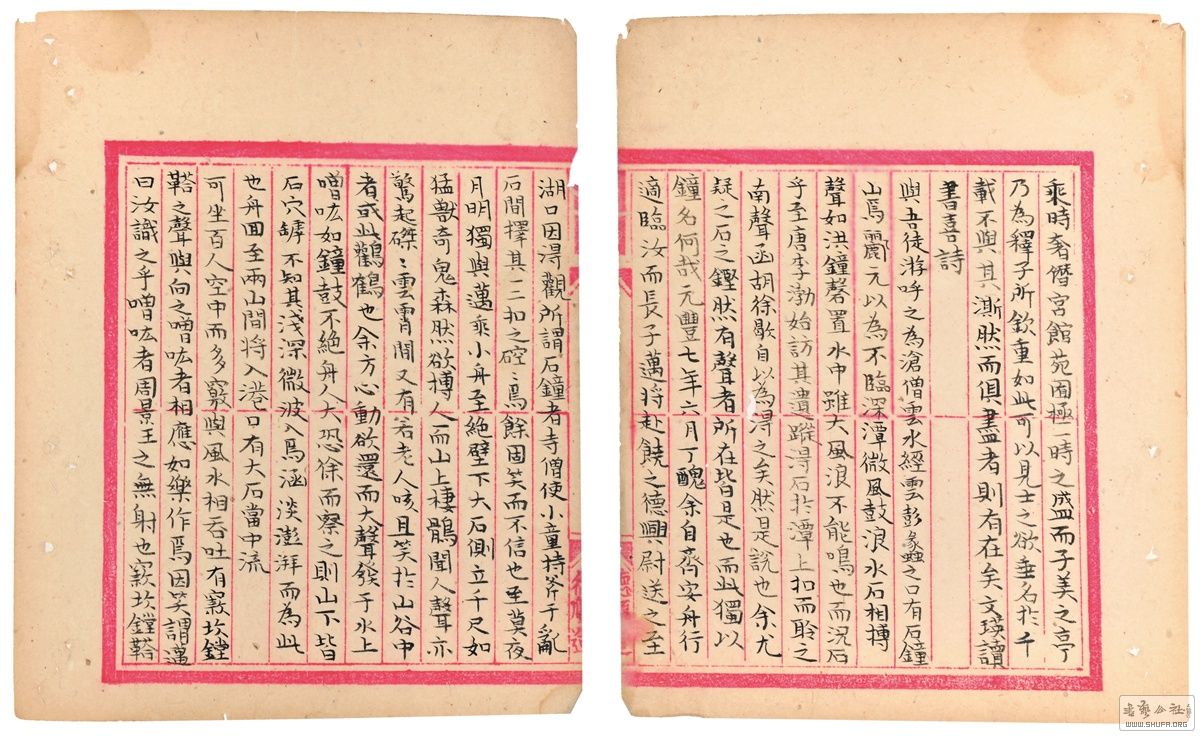 乘時奢僭宮館苑囿極一時之盛而子美之亭
乃為釋子所欽重如此可以見士之欲垂名於千
載不與其澌然而俱盡者則有在矣文瑛讀
書喜詩
與吾徒游呼之為滄僧雲水經雲彭蠡之口有石鐘
山焉酈元以為不臨深潭微風鼓浪水石相搏
聲如洪鐘磬置水中雖大風浪不能鳴也而況石
乎至唐李渤始訪其遺蹤得石於潭上扣而聆之
南聲函胡徐歇自以為得之矣然是說也余尤
疑之石之鏗然有聲者所在皆是也而此獨以
鐘名何哉元豐七年六月丁醜余自齊安舟行
適臨汝而長子邁將赴饒之德興尉送之至
湖口因得觀所謂石鐘者寺僧使小童持斧于亂
石間擇其一二扣之硿硿焉餘固笑而不信也至莫夜
月明獨與邁乘小舟至絕壁下大石側立千尺如
猛獸奇鬼森然欲搏人而山上棲鶻聞人聲亦
驚起磔磔雲霄間又有若老人咳且笑於山谷中
者或此鸛鶴也余方心動欲還而大聲發于水上
噌吰如鐘鼓不絕舟人大恐徐而察之則山下皆
石穴罅不知其淺深微波入焉涵淡澎湃而為此
也舟回至兩山間將入港口有大石當中流
可坐百人空中而多竅與風水相吞吐有窾坎鏜
鞳之聲與向之噌吰者相應如樂作焉因笑謂邁
曰汝識之乎噌吰者周景王之無射也窾坎鏜鞳
WWW.SHUFA.ORG